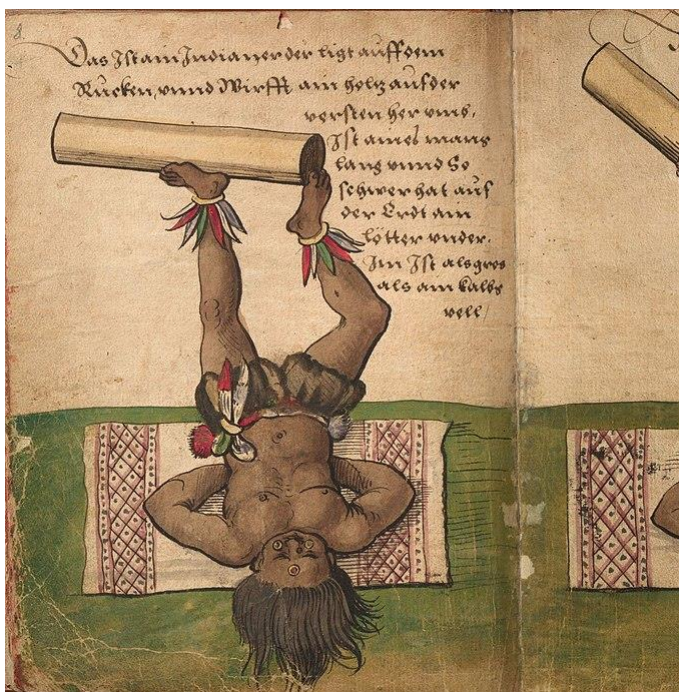 8
Das Ist ain Indianer der ligt auff dem
Rucken, unnd Wirfft ain holtz auf der
versten her umb,
Ist aines mans
lang unnd So
schwer hat auf
der Erdt ain
lötter under.
Im Ist als gros
als ain kalbs
vell /